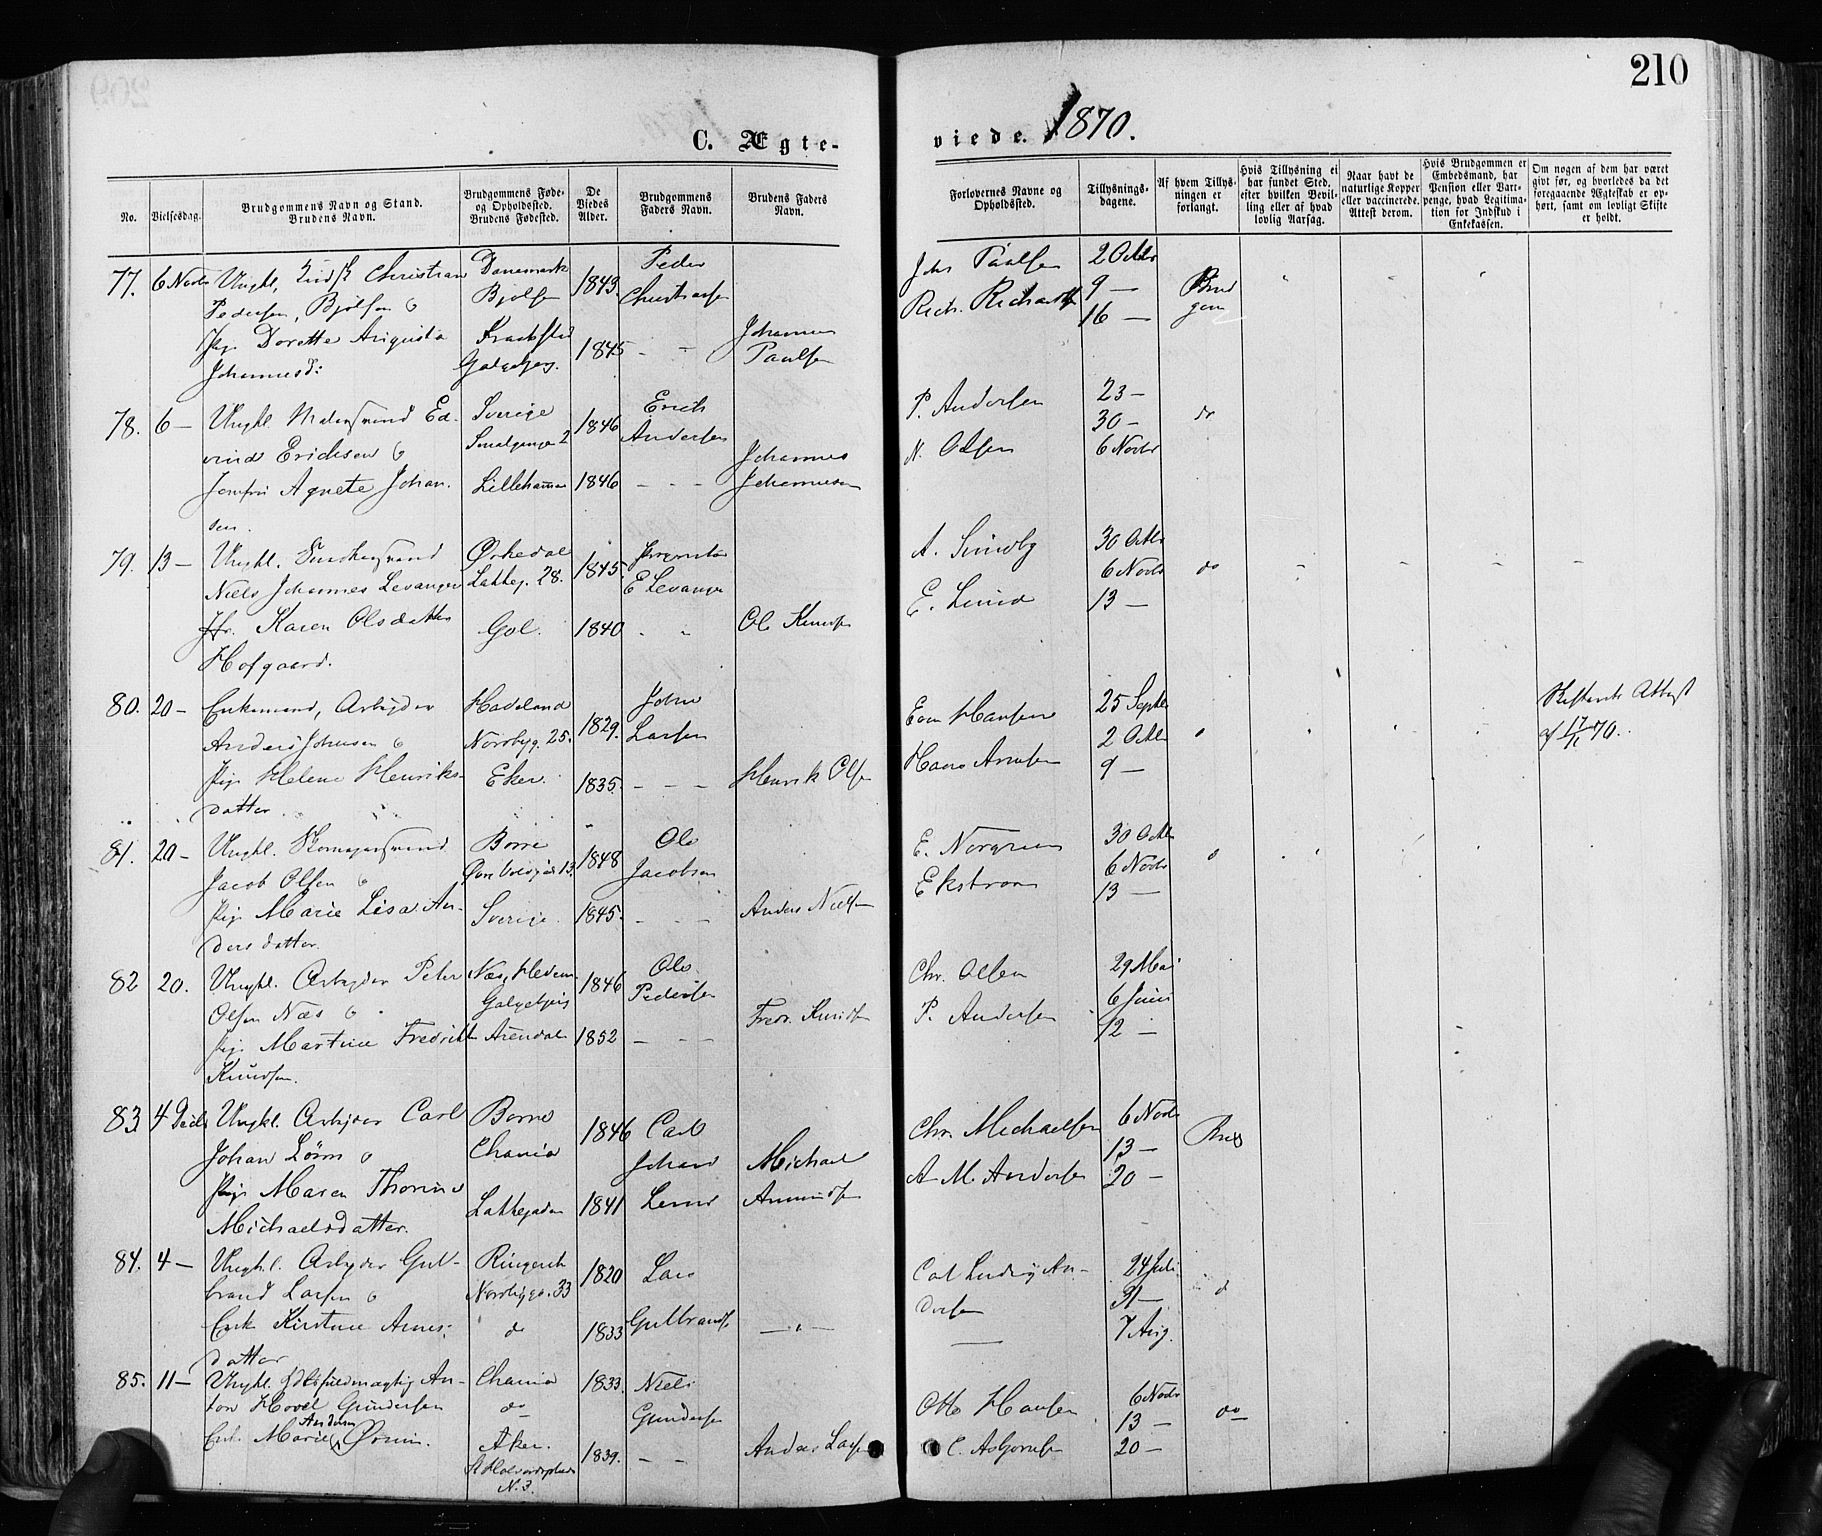 210
C. Ægte-
viede. 1870.
No.
Vielsesdag.
Brudgommens Navn og Stand.
Brudens Navn.
Brudgommens Føde-
og Opholdsted.
Brudens Fødested.
De
Viedes
Alder.
Brudgommens
Faders Navn.
Brudens Faders
Navn.
Forlovernes Navne og
Opholdsted.
Tillysnings-
dagene.
Af hvem Tillys-
ningen er
forlangt.
Hvis Tillysning ei
har fundet Sted,
efter hvilken Bevil-
ling eller af hvad
lovlig Aarsag.
Naar havt de
naturlige Kopper
eller vaccinerede.
Attest derom.
Hvis Brudgommen er
Embedsmand, har
Pension eller Vart-
penge, hvad Legitima-
tion for Indskud i
Enkekassen.
Om nogen af dem har været
gift før, og hvorledes da det
foregaaende Ægteskab er op-
hørt, samt om lovligt Skifte
er holdt.
77. 6 Novbr Ungkl. Christian Danemark 1843. Peder
Pedersen, Bjølsen Bjølsen Christiansen
Pige Dorette Augusta Kraakstad 1845 - - Johannes
Johannesd: Galgebjerg. Paulsen
Johs Paulsen 2 Octbr
Rich. 9 — Brud
16 — gom
78. 6 — Ungkl. Malersvend Ed- Sverige 1846 Erich
vind Ericksen Smalgangen 2 Andersen
Jomfru Agnete Johan- Lillehammer 1846 - - - Johannes
sen. Johannesen
P. Andersen 23 —
30 — do
N. Olsen 6 Novbr
79. 13 — Ungkl. Ørkedal 1845.
Niels Johannes Levanger Lakkeg. 28. E Levanger
Jfr. Karen Olsdatter Gol. 1840 - - Ole Knudsen
Hofgaard.
A. Sundby 30 Octbr
6 Novbr do
E. Lund 13 —
80. 20 — Enkemand, Arbeider Hadeland 1829. John
Anders Johnsen Norbyg. 25. Larsen
Pige Helene Henriks- Eker. 1835. - - - Henrik Olsen
datter.
Even Hansen 25 Septbr
2 Octbr
Hans 9 —
Skifterets Attest
af 70.
81. 20 — Ungkl. Skomagersvend Borre 1848 Ole
Jacob Olsen 13. Jacobsen
Pige Marie Lisa An- Sverige. 1845. - - - Anders Nielsen
dersdatter.
E. Norgren 30 Octbr
6 Novbr
Ekstrom 13 —
82 20. Ungkl. Arbeider Peter Næs, Hedem. 1846 Ole
Olsen Næs Galgebjerg Pedersen
Pige Martine Fredrikke Arendal 1852 - - - Fredr. Knudsen
Knudsen.
Chr. Olsen 29 Mai
6 Juni
P. Andersen 12 —
83. 4 Decbr Ungkl. Arbeider Carl Borre 1846 Carl
Johan Chania Johan
Pige Maren Thorine Lakkegaden 1841 Michael
Michaelsdatter. Amundsen
Chr. Michaelsen 6 Novbr
13 —
A. M. Andersen 20 —
84. 4 — Ungkl. Arbeider Gul- Ringerik 1820 Lars
brand Larsen Norbygd. 33 Gulbrands.
Enke Kirstine Arnes- do 1833 — „ —
datter
Carl Ludvig An- 24 Juli
dersen 31 —
— 7 Aug.
85. 11 — Ungkl. fuldmægtig An- Chania 1833. Niels
ton Hovel Gundersen do Gundersen
Andersen
Enk. Marie Aker. 1839. - - Anders Larsen
St Halvardsplads
N. 3.
Otto Hansen 6 Novbr
13 — do
C. Asbjørnsen 20 —